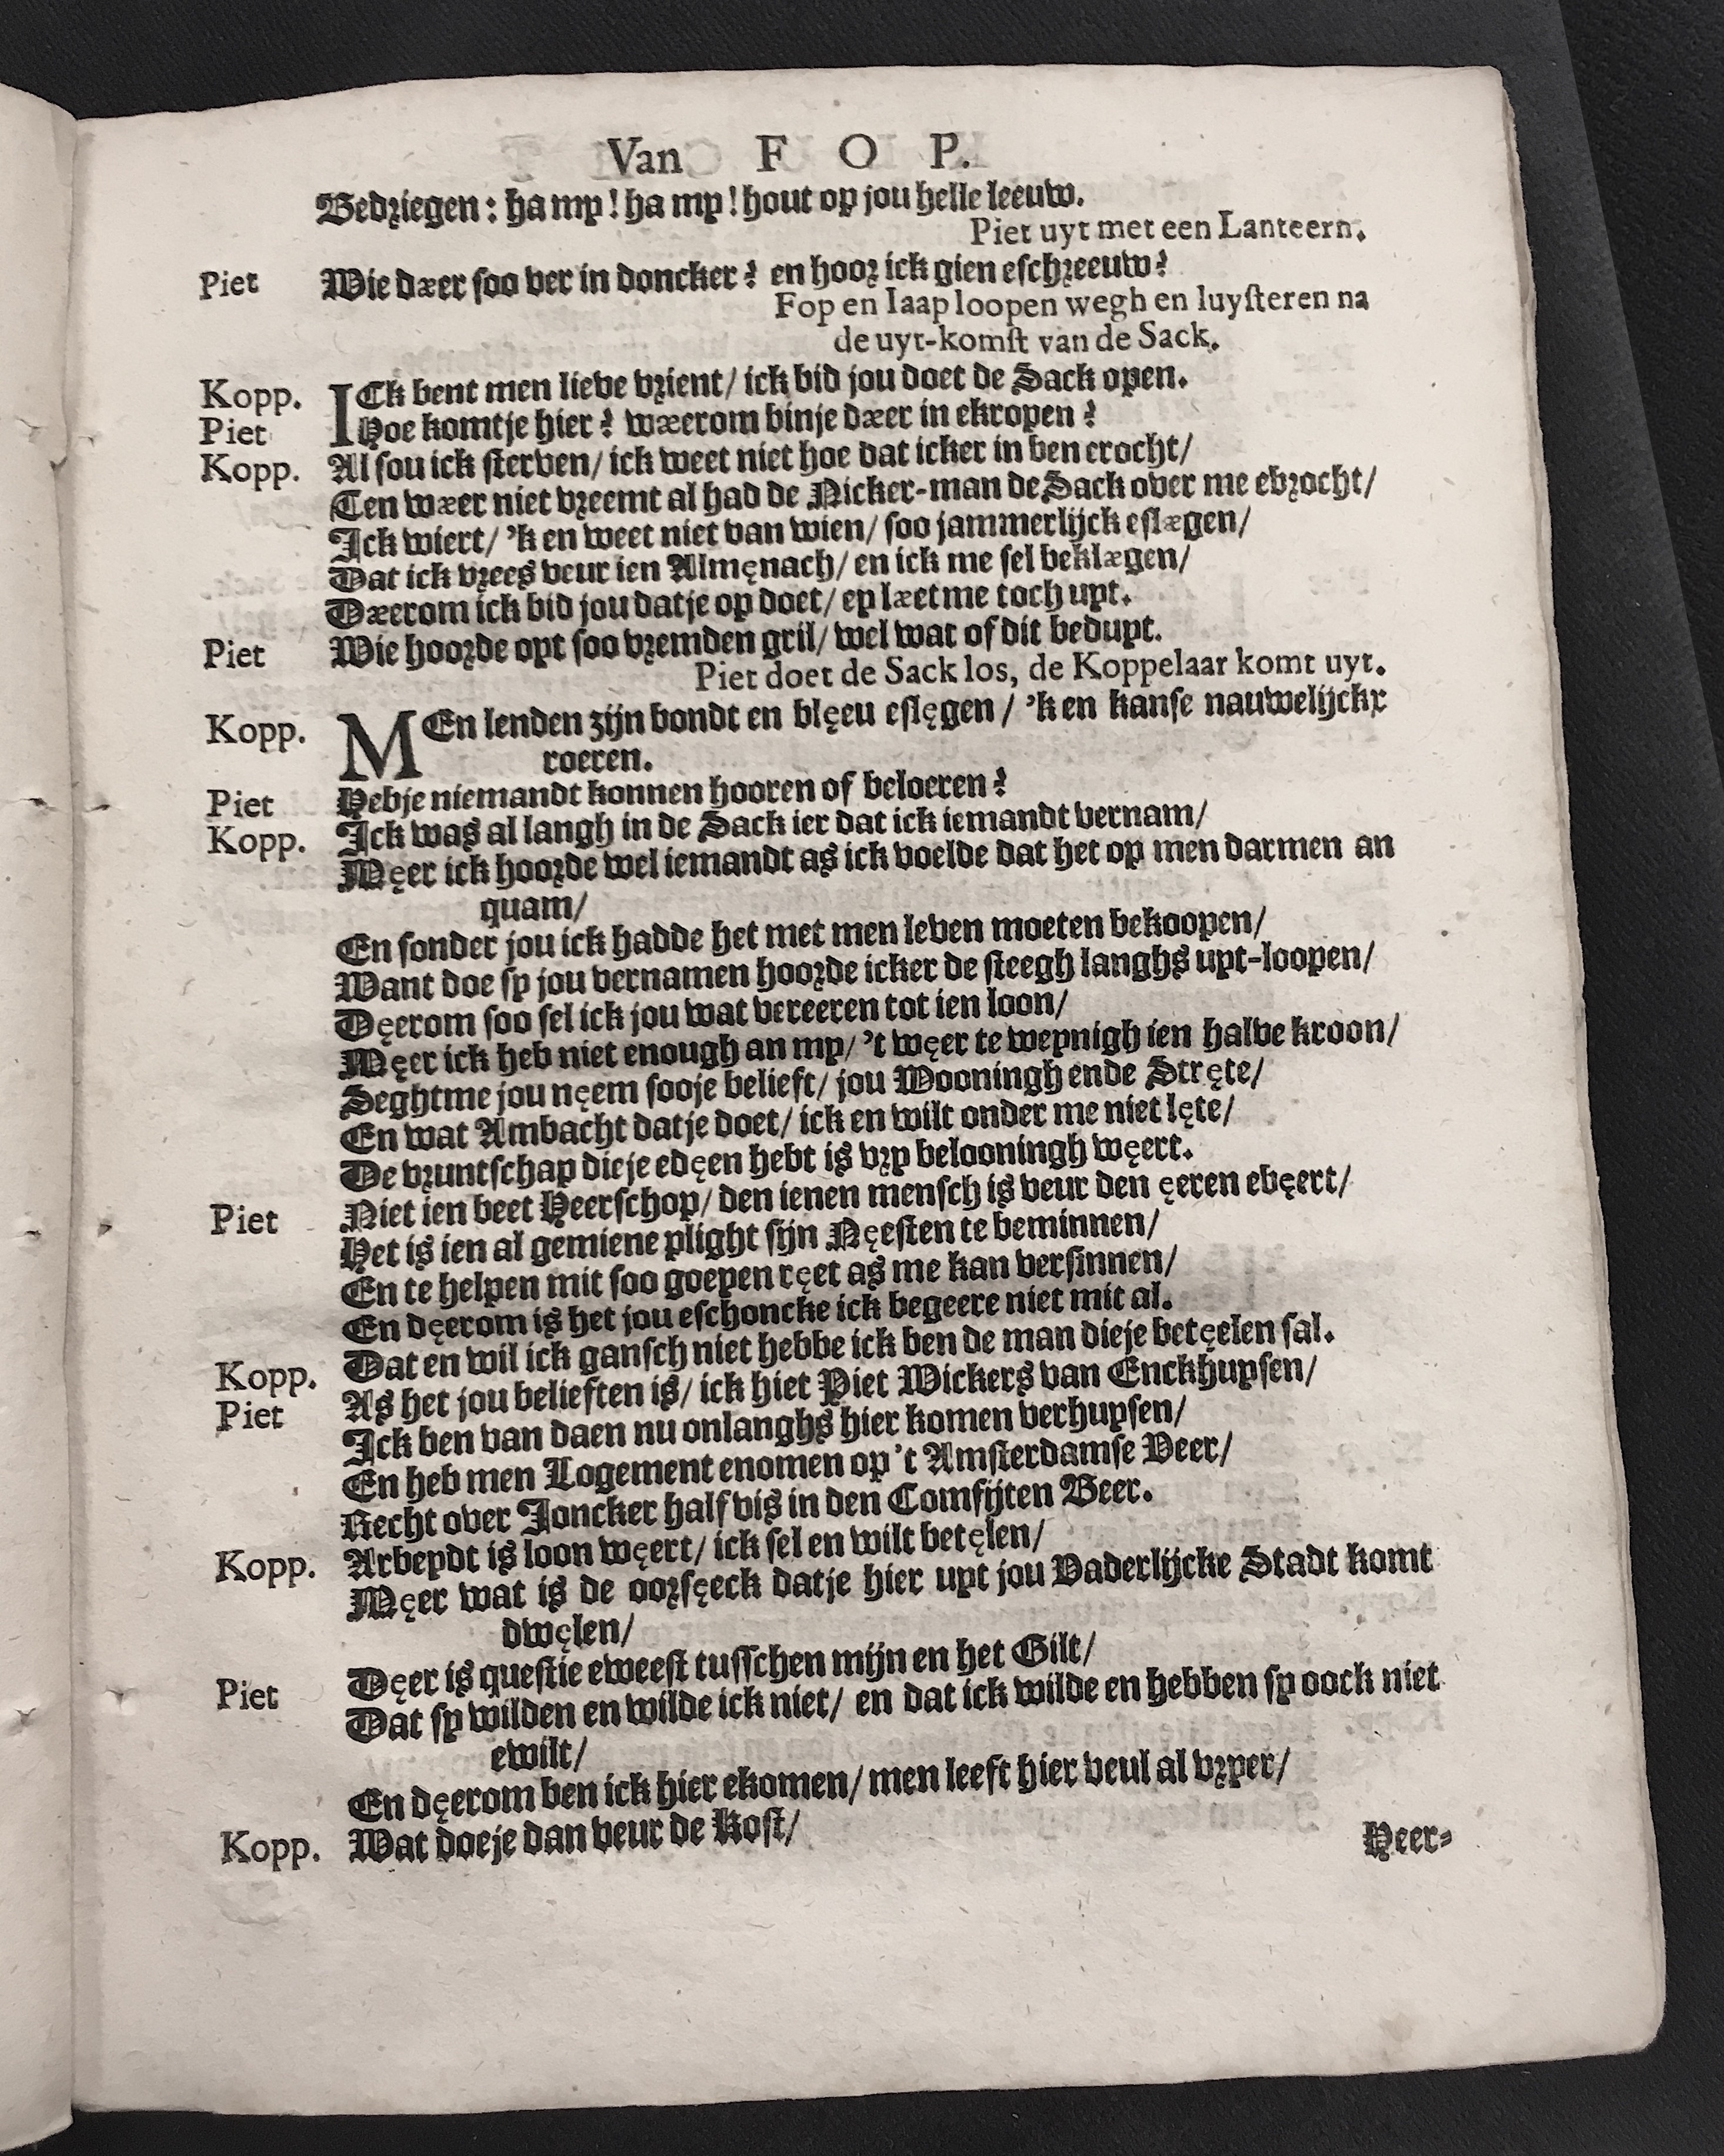 Van F O P.
Bedriegen: ha my! ha my! hout op jou helle leeuw.
Piet uyt met een Lanteern.
Piet Wie dæer soo ver in doncker? en hoor ick gien eschreeuw?
Fop en Iaap loopen wegh en luysteren na
de uyt-komst van de Sack.
Kopp. ICk bent men lieve vrient/ ick bid jou doet de Sack open.
Piet Hoe komtje hier? wæerom binje dæer in ekropen?
Kopp. Al sou ick sterven/ ick weet niet hoe dat icker in ben erocht/
Ten wæer niet vreemt al had de Nicker-man de Sack over me ebrocht/
Ick wiert/ 'k en weet niet van wien/ soo jammerlijck eslægen/
Dat ick vrees veur ien Almęnach/ en ick me sel beklægen/
Dæerom ick bid jou datje op doet/ ey læetme toch uyt.
Piet Wie hoorde oyt soo vremden gril/ wel wat of dit beduyt.
Piet doet de Sack los, de Koppelaar komt uyt.
Kopp. MEn lenden zijn bondt en blęeu eslęgen/ 'k en kanse nauwelijckx
roeren.
Piet Hebje niemandt konnen hooren of beloeren?
Kopp. Ick was al langh in de Sack ier dat ick iemandt vernam/
Męer ick hoorde wel iemandt as ick voelde dat het op men darmen an
quam/
En sonder jou ick hadde het met men leven moeten bekoopen/
Want doe sy jou vernamen hoorde icker de steegh langhs uyt-loopen/
Dęerom soo sel ick jou wat vereeren tot ien loon/
Męer ick heb niet enough an my/ 't węer te weynigh ien halve kroon/
Seghtme jou nęem sooje belieft/ jou Wooningh ende Stręte/
En wat Ambacht datje doet/ ick en wilt onder me niet lęte/
De vruntschap dieje edęen hebt is vry belooningh węert.
Piet Niet ien beet Heerschop/ den ienen mensch is veur den ęeren ebęert/
Het is ien al gemiene plight sijn Nęesten te beminnen/
En te helpen mit soo goeyen ręet as me kan versinnen/
En dęerom is het jou eschoncke ick begeere niet mit al.
Kopp. Dat en wil ick gansch niet hebbe ick ben de man dieje betęelen sal.
Piet As het jou belieften is/ ick hiet Piet Wickers van Enckhuysen/
Ick ben van daen nu onlanghs hier komen verhuysen/
En heb men Logement enomen op 't Amsterdamse Veer/
Recht over Joncker half vis in den Comfijten Beer.
Kopp. Arbeydt is loon węert/ ick sel en wilt betęlen/
Męer wat is de oorsęeck datje hier uyt jou Vaderlijcke Stadt komt
dwęlen/
Piet Dęer is questie eweest tusschen mijn en het Gilt/
Dat sy wilden en wilde ick niet/ en dat ick wilde en hebben sy oock niet
ewilt/
En dęerom ben ick hier ekomen/ men leeft hier veul al vryer/
Kopp. Wat doeje dan veur de Kost/
Heer-